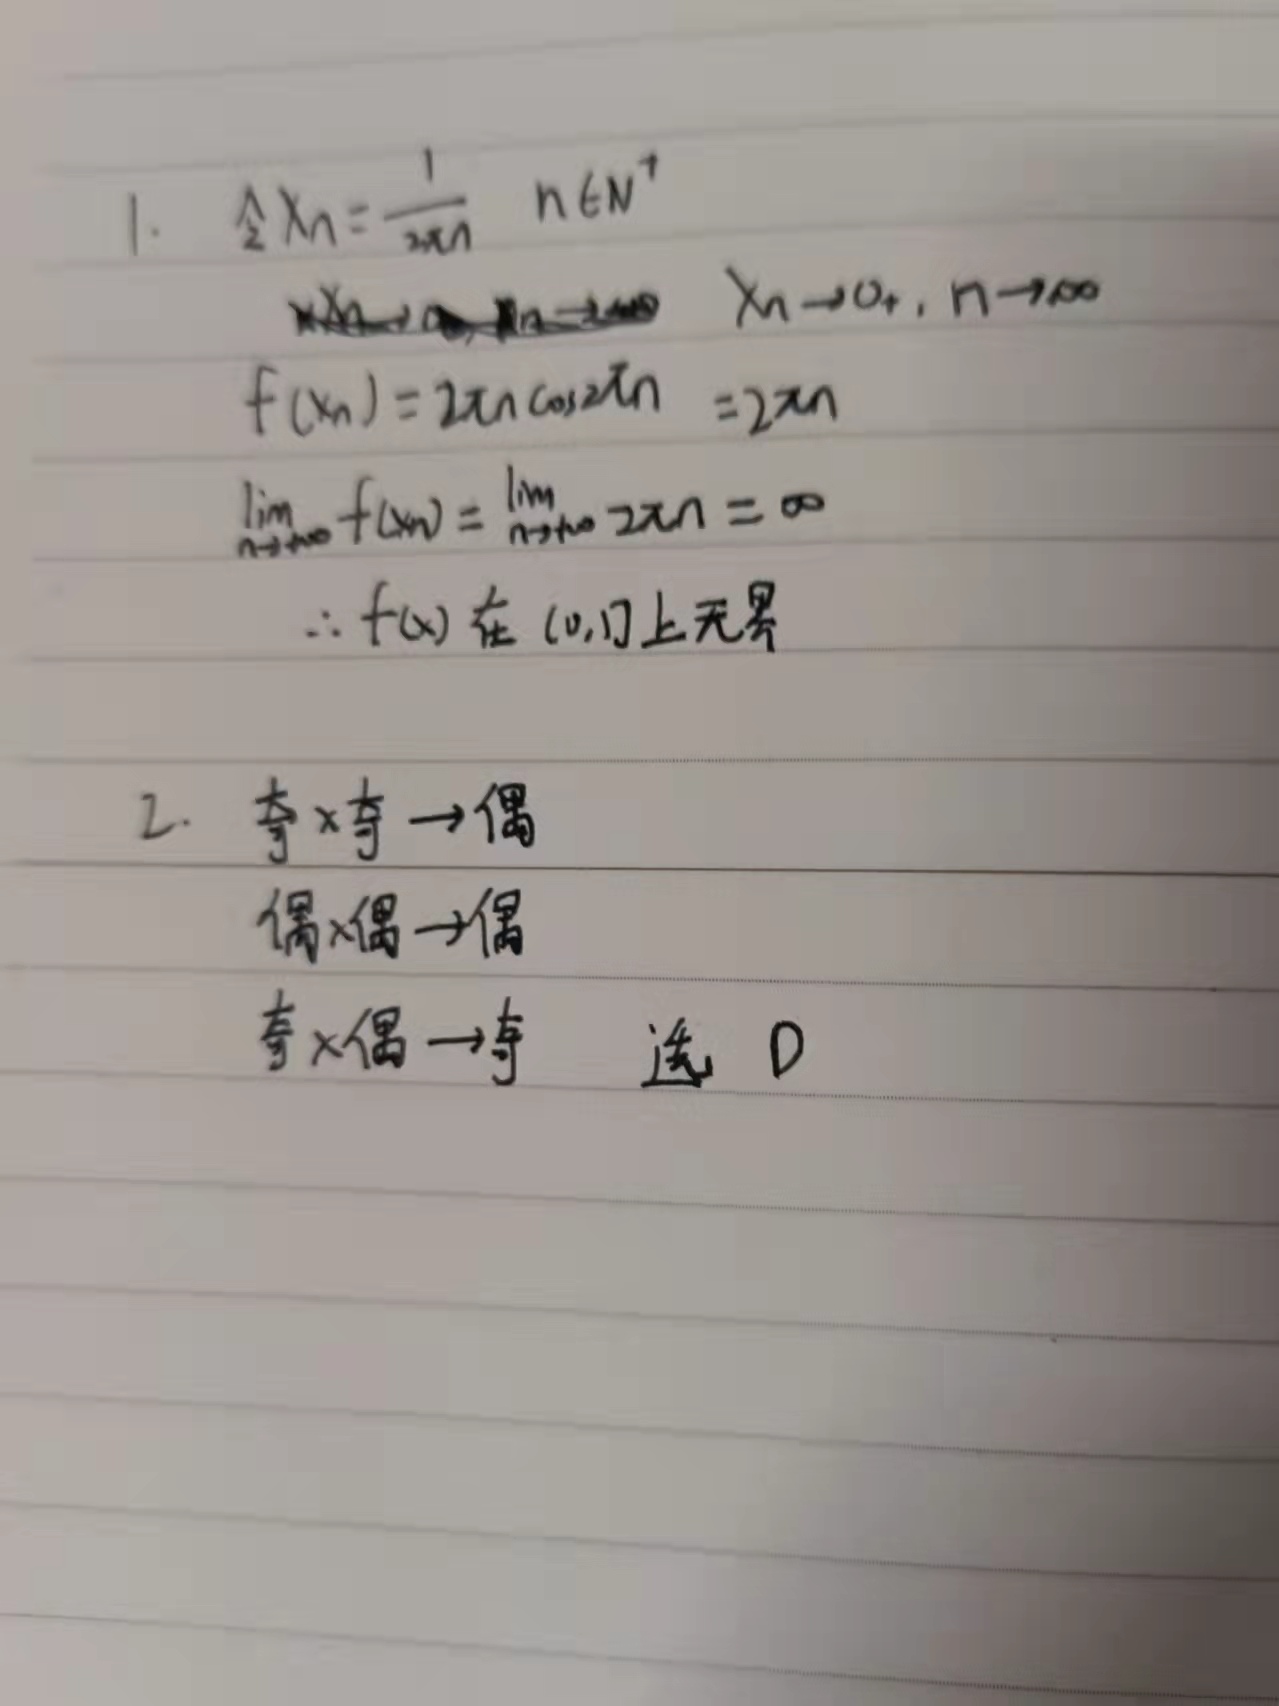 1. 令 Xn = 1/2πn n∈N⁺
Xn→0+, n→∞
f(xn) = 2πn cos2πn = 2πn
lim n→+∞ f(xn) = lim n→+∞ 2πn = ∞
∴ f(x) 在 (0,1] 上无界
2. 奇×奇→偶
偶×偶→偶
奇×偶→奇 选 D